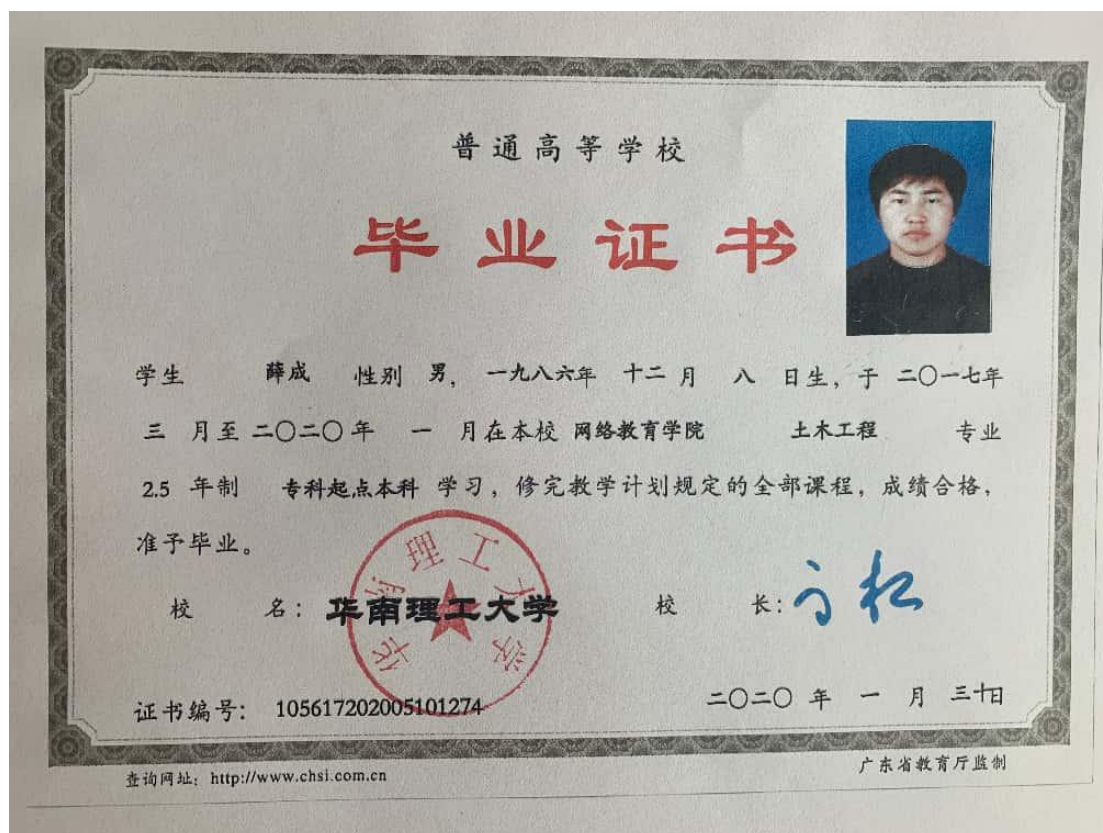 普通高等学校
毕业证书
学生 薛成 性别 男，一九八六年 十二 月 八 日生，于 二〇一七年
三 月至 二〇二〇 年 一 月在本校 网络教育学院 土木工程 专业
2.5 年制 专科起点本科 学习，修完教学计划规定的全部课程，成绩合格，
准予毕业。
华南理工大学
校 名：华南理工大学 校 长：
证书编号：105617202005101274 二〇二〇 年 一 月 三十日
查询网址：http://www.chsi.com.cn 广东省教育厅监制